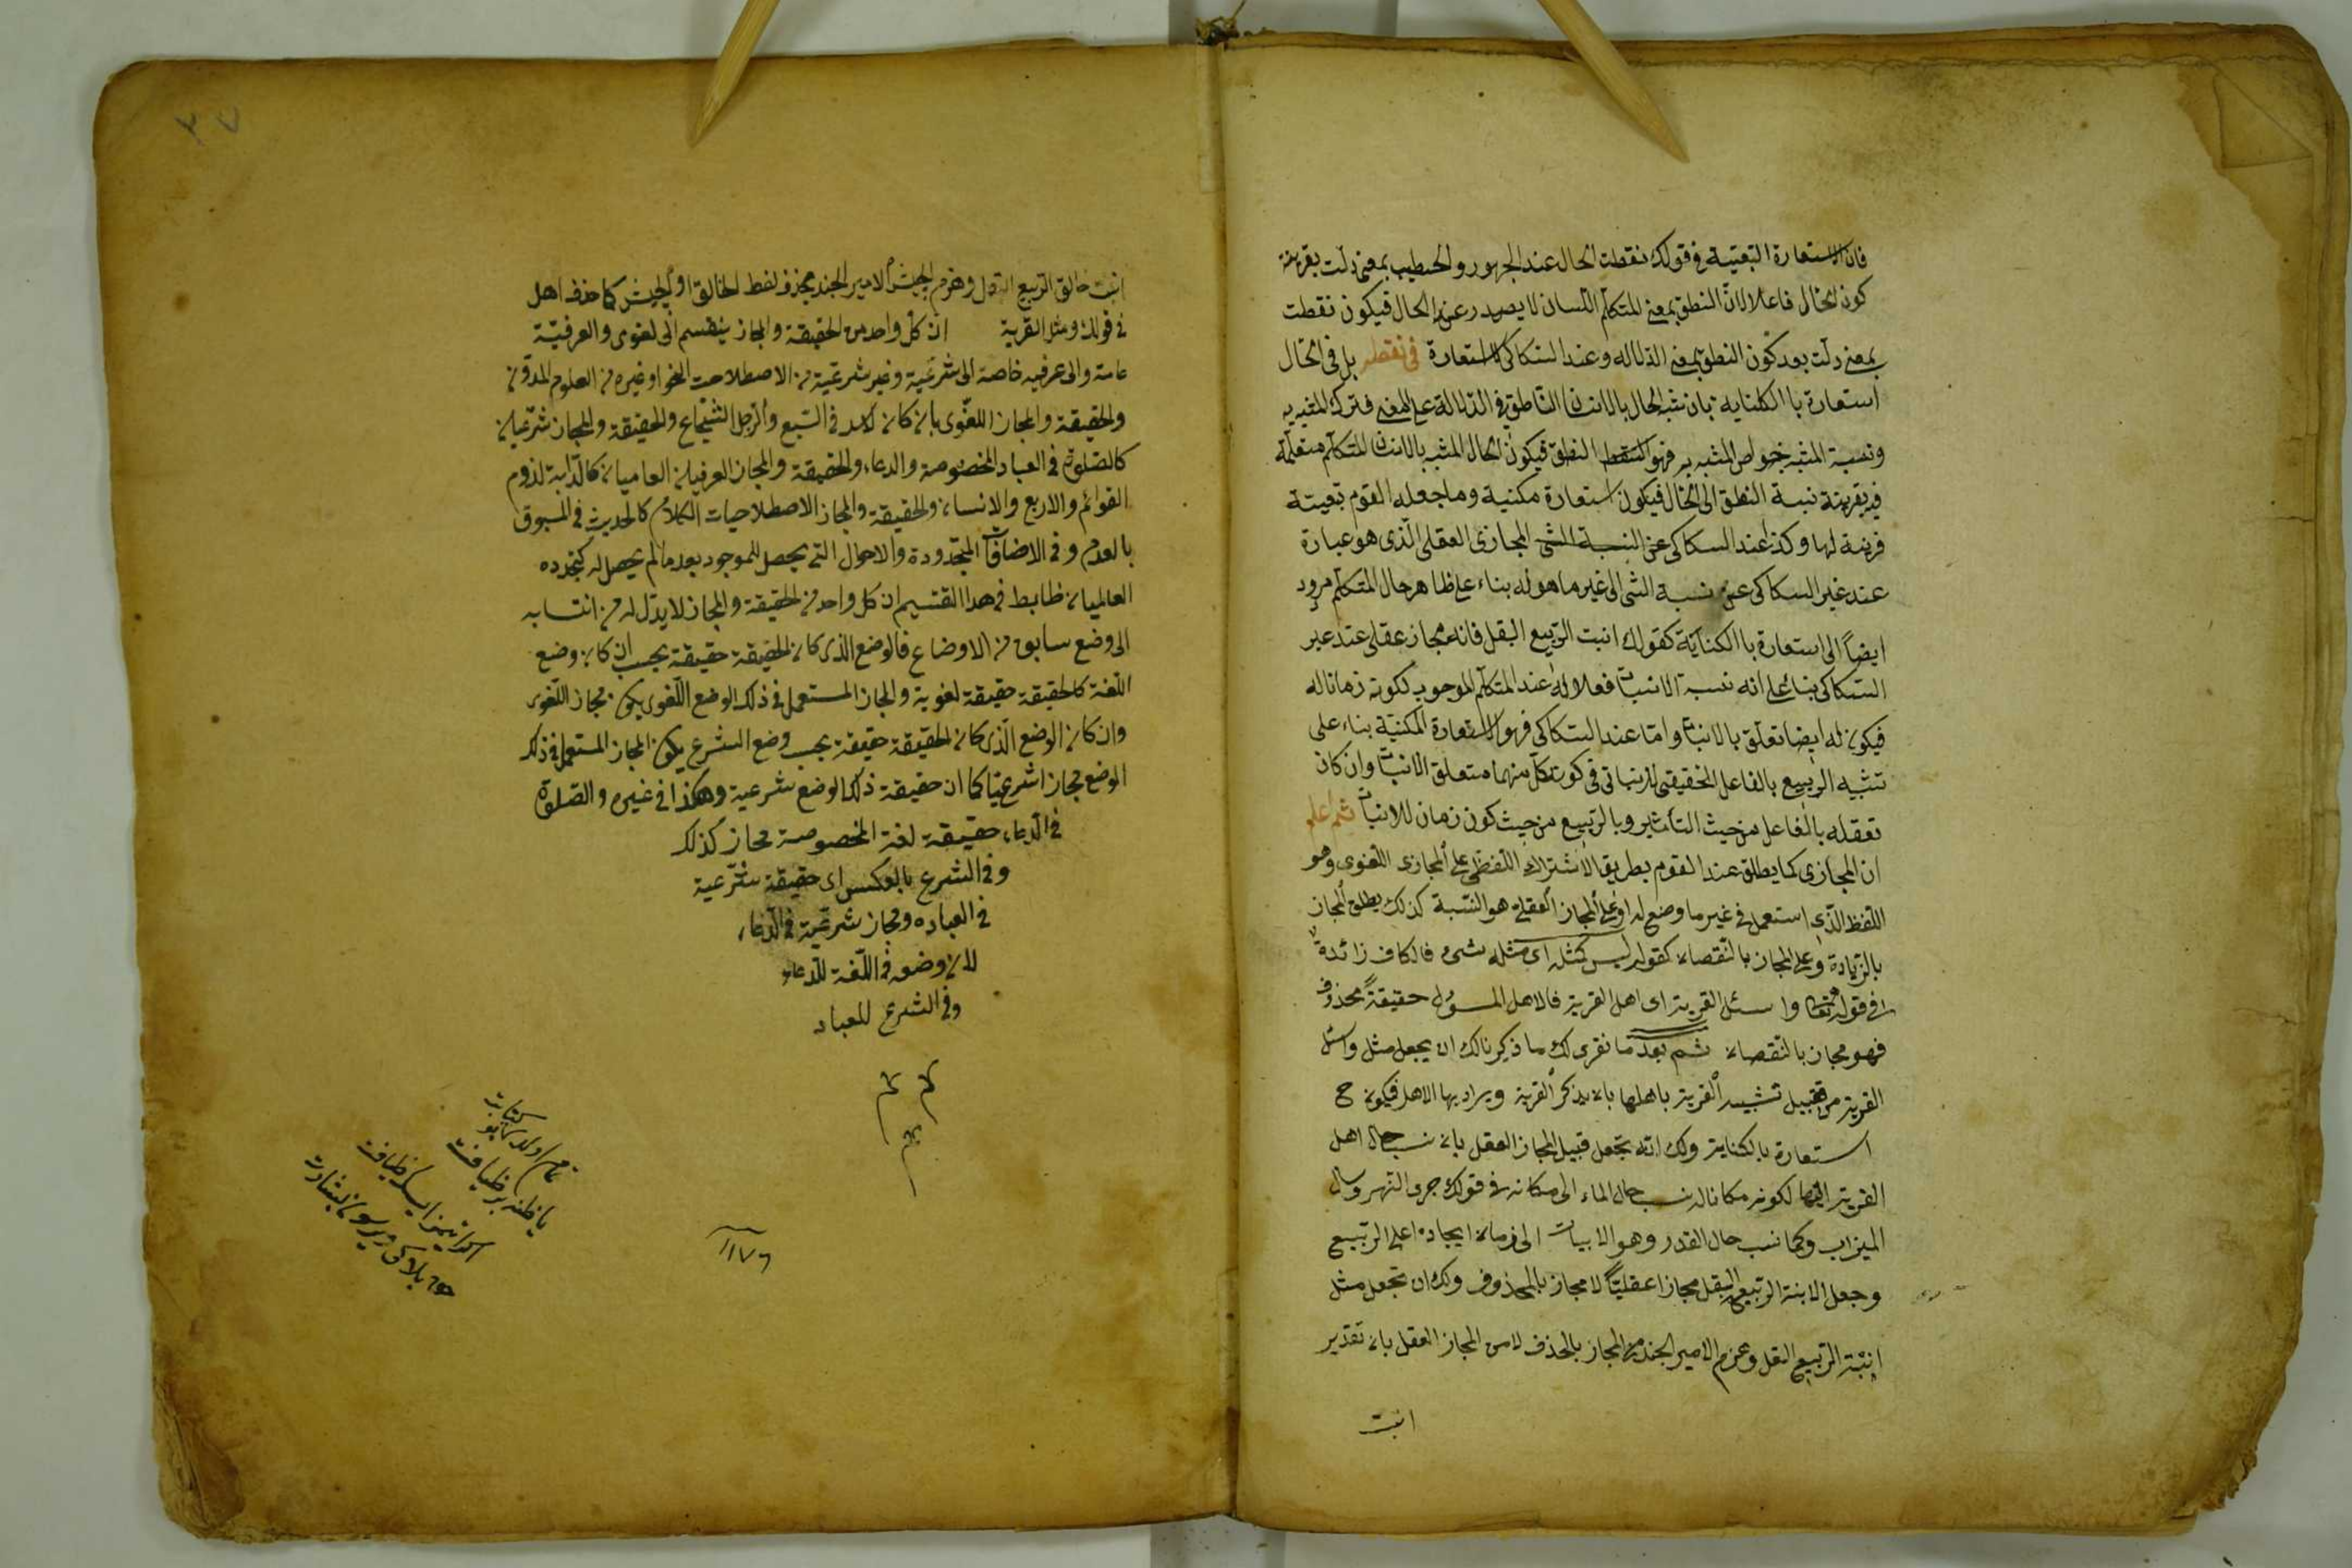 فان الاستعارة التبعيّة فى قولك نقطت الحال عند الجمهور والخطيب بمعنى دلّت بقرينة
كون الحال فاعلا لان النطق بمعنى المتكلّم اللسان لا يصدر عن الحال فيكون نقطت
بمعنى دلّت بعد كون النطق بمعنى الدلاله وعند السّكاكى لا استعارة فى نقطت بل فى الحال
استعارة باالكناية بان شبه الحال بالانسان الناطق فى الدلالة على المعنى فترك المشبه به
ونسبة المشبه خواص المشبه به فهو النطق فيكون الحال المشبه بالانسان المتكلّم
فيه بقرينة نسبة النطق الى الحال فيكون استعارة مكنية وما جعله القوم تبعيّة
قرينة لها وكذا عند السكاكى عن النسبة الشئ المجازى العقلى الّذى هو عبارة
عند غير السكاكى عن نسبة الشئ الى غير ما هو له بناء على ظاهر حال المتكلّم مردود
ايضاً الى استعارة باالكناية كقولك انبت الرّبيع البقل فانه مجاز عقلى عند غير
السّكاكى بناء على انه نسبة الانبات فعلا له عند المتكلّم الموحود لكونه زمانا له
فيكون له ايضا تعلّق بالانبات وامّا عند السّكاكى فهو الاستعارة المكنيّة بناء على
تشبيه الرّبيع بالفاعل الحقيقى للانبات فى كون كلّ منهما متعلّق الانبات وان كان
تعقله بالفاعل من حيث التأثير وبالربيع من حيث كون زمان للانبات ثم اعلم
ان المجازى كما يطلق عند القوم بطريق الاشتراك اللّفظى على المجازى اللّغوى وهو
اللّفظ الّذى استعمل فى غير ما وضع له او على المجاز العقلى هو النّسبة كذلك يطلق المجاز
بالزّيادة وعلى المجاز بالنّقصان كقوله ليس كمثله اى مثله شىء فالكاف زائدة
فى قوله تعالى واسئل القرية اى اهل القرية فالاهل المسؤل حقيقةً محذوف
فهو مجاز بالنّقصان ثم بعد ما نقرر لك ما ذكرنا لك ان يجعل مثل واسئل
القرية من قبيل تشبيه القرية باهلها بان يذكر القرية ويراد بها الاهل فيكون ح
استعارة بالكناية ولك انه تجعل قبيل المجاز العقل بان نسب حال اهل
القرية اليها لكونه مكانا له نسب حال الماء الى مكانه فى قولك جرى النّهر وسال
الميزاب وكما نسب حال القدر وهو الابيات الى زمان ايجاده اعلى الرّبيع
وجعل الابنة الرّبيع البقل مجازا عقليّاً لا مجاز بالمحذوف ولك ان تجعل مثل
انبتة الرّبيع البقل وهزم الامير الجند من المجاز بالحذف لا من المجاز العقل بان تقدير
انبت
انبت خالق الرّبيع البقل وهزم الجيش الامير الجند بحذف لفظ الخالق او الجيش كما حذف اهل
فى قولك ومثل القرية ان كل واحد من الحقيقة والمجاز ينقسم الى لغوى والعرفيّة
عامة والى عرفيه خاصة الى شرعيّة وغير شرعيّة من الاصطلاحات النحو او غيره من العلوم المدوّن
والحقيقة والمجاز اللّغوى بان كان كالاسد فى السّبع والرّجل الشّجاع والحقيقة والمجاز شرعيان
كالصّلوة فى العباد المخصوصة والدعاء والحقيقة والمجاز العرفيان العاميان كالدّابة لذوم
القوائم والاربع والانسان والحقيقة والمجاز الاصطلاحيات الكلام كالحديث فى المسبوق
بالعدم وفى الاضافات المتجدّدة والاحوال التى يحصل للموجود بعد مالم يحصل له كتجدده
العالميان ظابط فى هذا القتسيم ان كل واحد من الحقيقة والمجاز لا بدّ له من انتسابه
الى وضع سابق من الاوضاع فالوضع الذى كان الحقيقة حقيقة بحسب ان كان وضع
اللّغة كالحقيقة حقيقة لغوية والمجاز المستعمل فى ذلك الوضع اللّغوى يكون مجاز اللّغوى
وان كان الوضع الّذى كان الحقيقة حقيقة بحسب وضع الشرع يكون المجاز المستعمل فى ذلك
الوضع مجازا شرعيّا كما ان حقيقة ذلك الوضع شرعية وهكذا فى غيره والصّلوة
فى الدّعاء حقيقة لغة المخصوصة مجاز كذلك
وفى الشرع بالعكس اى حقيقة شرّعية
فى العباده ومجاز شرعيّة فى الدّعاء
لان وضعه فى اللّغة للدّعاء
وفى الشرع للعباد
م م
١١٧٦
تمام اولدى بو كتابت